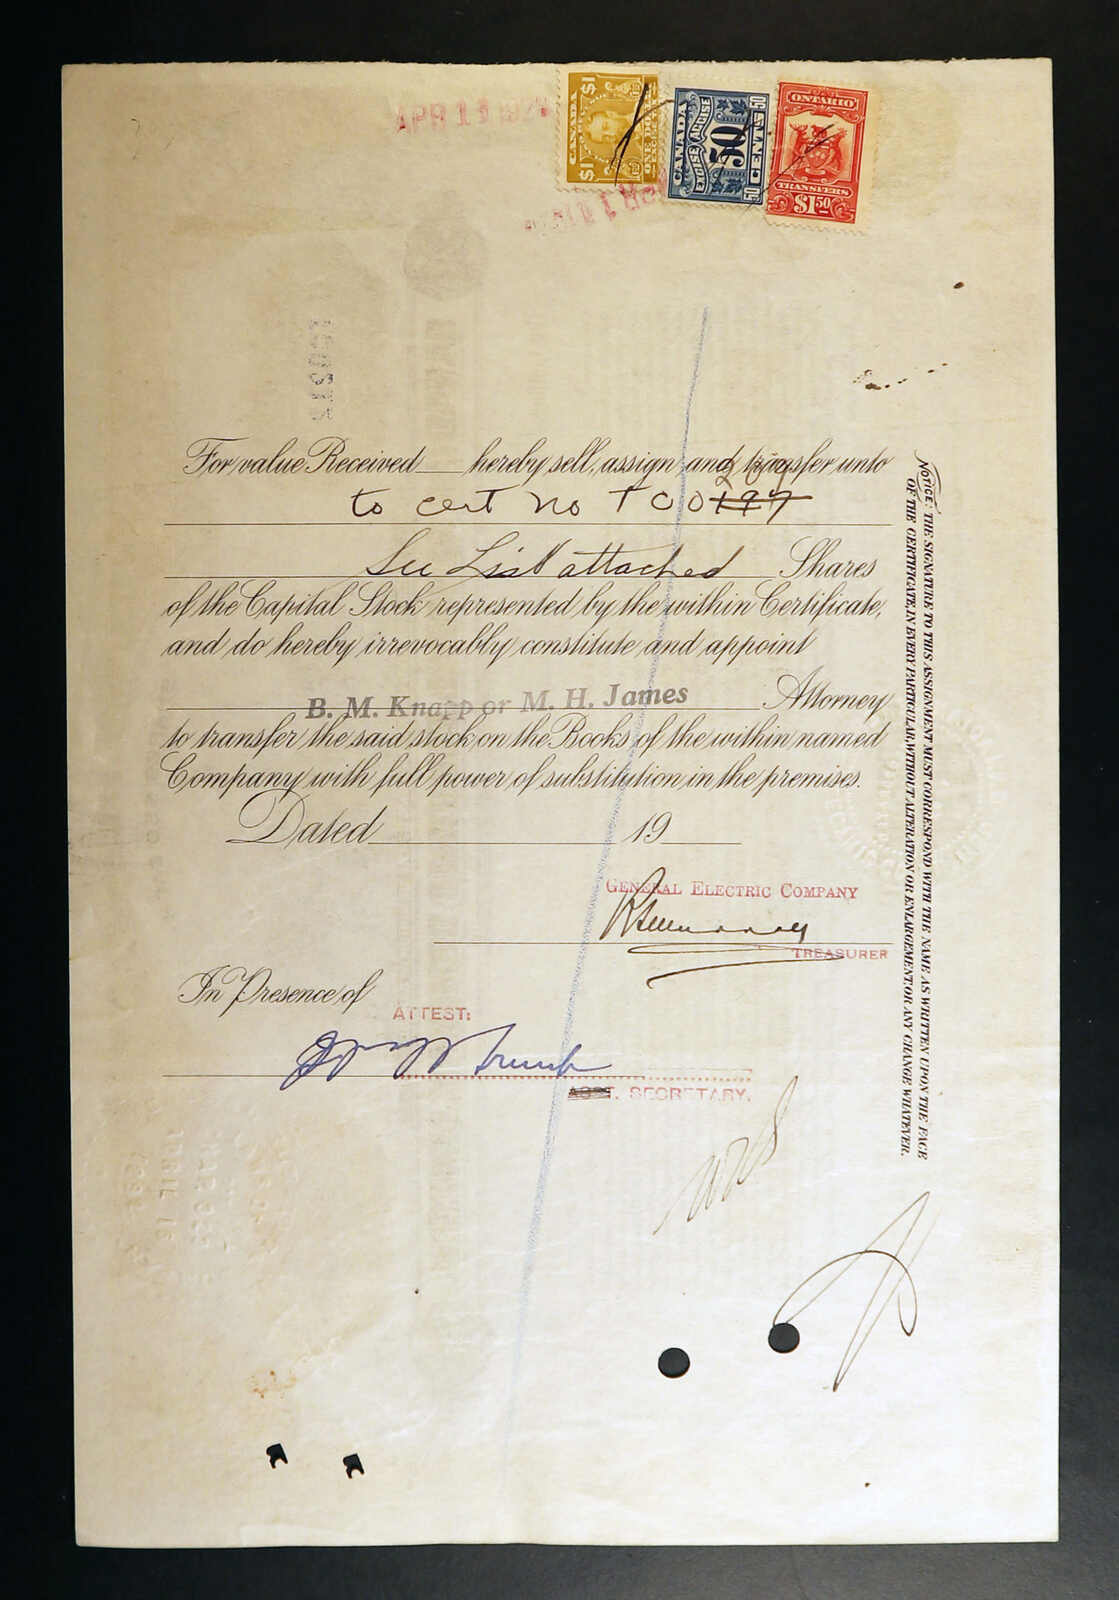 APR 11 192
CANADA
$1
$1
ONE DOLLAR
EXCISE TAX
50
50
CANADA
EXCISE ACCISE
50
CENTS
50
ONTARIO
TRANSFERS
$1.50
For value Received hereby sell, assign and transfer unto
to cert no TCO 197
See List attached Shares
of the Capital Stock represented by the within Certificate,
and do hereby irrevocably constitute and appoint
B. M. Knapp or M. H. James Attorney
to transfer the said stock on the Books of the within named
Company with full power of substitution in the premises.
Dated 19
GENERAL ELECTRIC COMPANY
TREASURER
In Presence of
ATTEST:
ASST. SECRETARY.
NOTICE: THE SIGNATURE TO THIS ASSIGNMENT MUST CORRESPOND WITH THE NAME AS WRITTEN UPON THE FACE
OF THE CERTIFICATE, IN EVERY PARTICULAR, WITHOUT ALTERATION OR ENLARGEMENT OR ANY CHANGE WHATEVER.